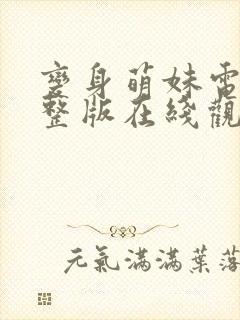 變身萌妹電
整版在綫觀
元氣滿滿葉落